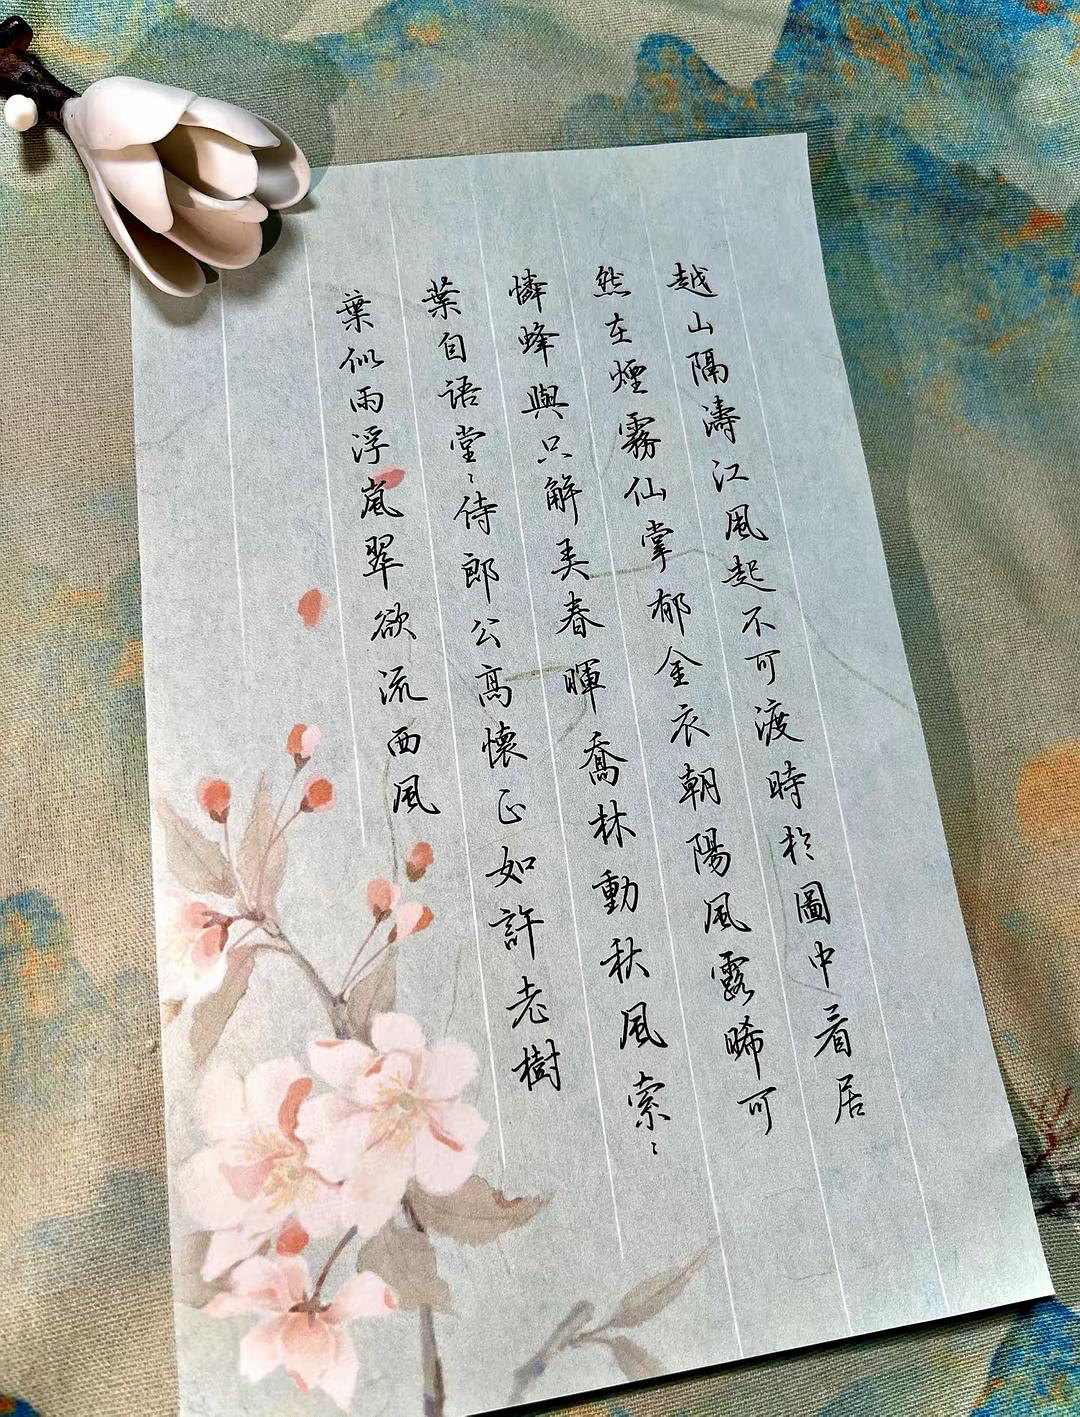 越山隔濤江風起不可渡時於圖中看居
然在煙霧仙掌郁金衣朝陽風露晞可
憐蜂與只解美春暉喬林動秋風索〻
葉自語堂〻侍郎公高懷正如許老樹
葉似雨浮嵐翠欲流西風